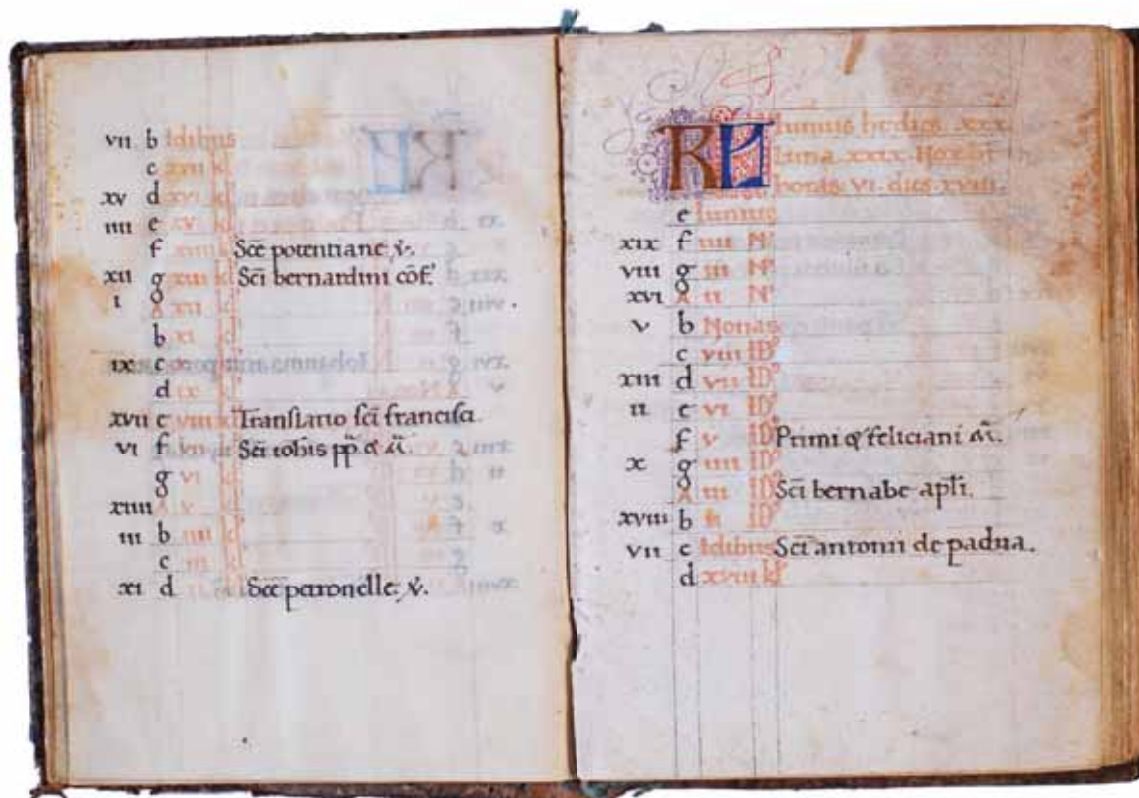 vii b Idibus
c xvii kl'
xv d xvi kl'
iiii e xv kl'
f xiiii kl' Scē potentiane v̄.
xii g xiii kl' Scī bernardini cōf.
i A xii kl'
b xi kl'
ix c x kl'
d ix kl'
xvii e viii kl' Translatio scī francisci.
vi f vii kl' Scī iohīs pp̄. & m̄.
g vi kl'
xiiii A v kl'
iii b iiii kl'
c iii kl'
xi d Scē petronelle v̄.
KL Iunius ht dies xxx.
Luna xxix. Nox ht
horas VI. dies xviii.
e Iunius
xix f iiii N'
viii g iii N'
xvi A ii N'
v b Nonas
c viii ID'
xiii d vii ID'
ii e vi ID'
f v ID' Primi & feliciani m̄.
x g iiii ID'
A iii ID' Scī bernabe apl'i.
xviii b ii ID'
vii c Idibus Scī antonii de padua.
d xviii kl'